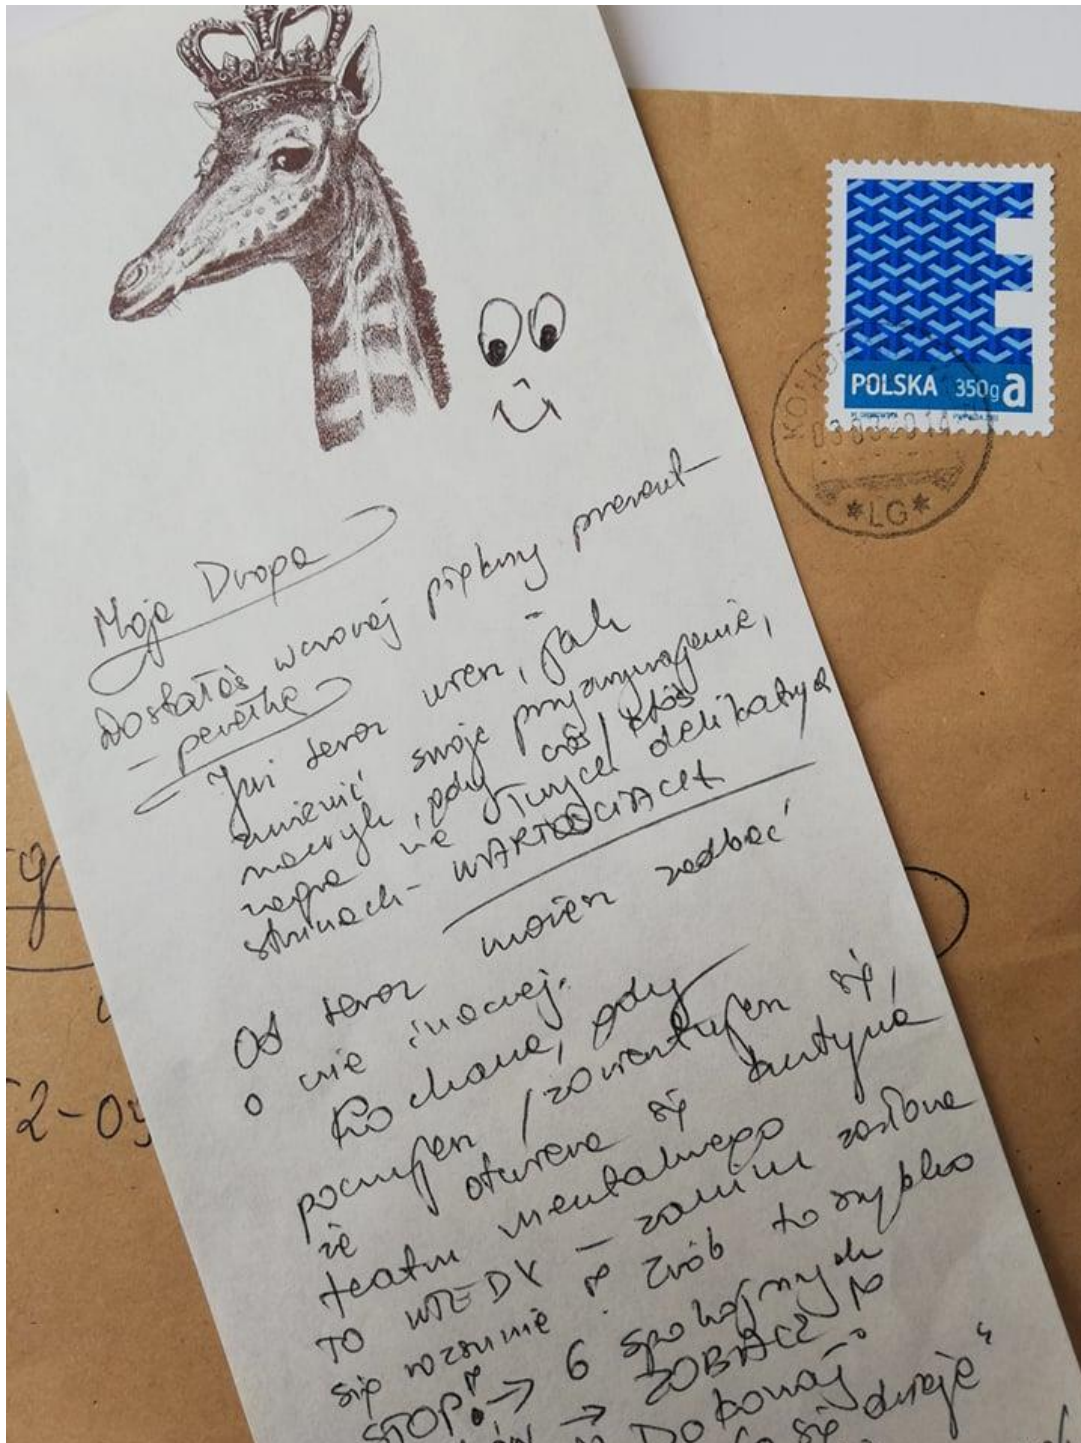 POLSKA 350g a
03032014
*LG*
Moja Droga
Dostałaś wczoraj piękny prezent-
- perełkę
Już teraz wiesz, jak
zmienić swoje przyzwyczajenie,
nawyk, gdy coś/ktoś
zagra na Twych delikatnych
strunach - WARTOŚCIACH
Od teraz możesz zadbać
o nie inaczej.
Kochana, gdy
poczujesz / zorientujesz się,
że otwiera się kurtyna
teatru mentalnego
TO WTEDY - zanim zasłona
się rozsunie Zrób to szybko
STOP! → 6 spokojnych
→ ZOBACZ to
Dokonaj
się dzieje"
2-09